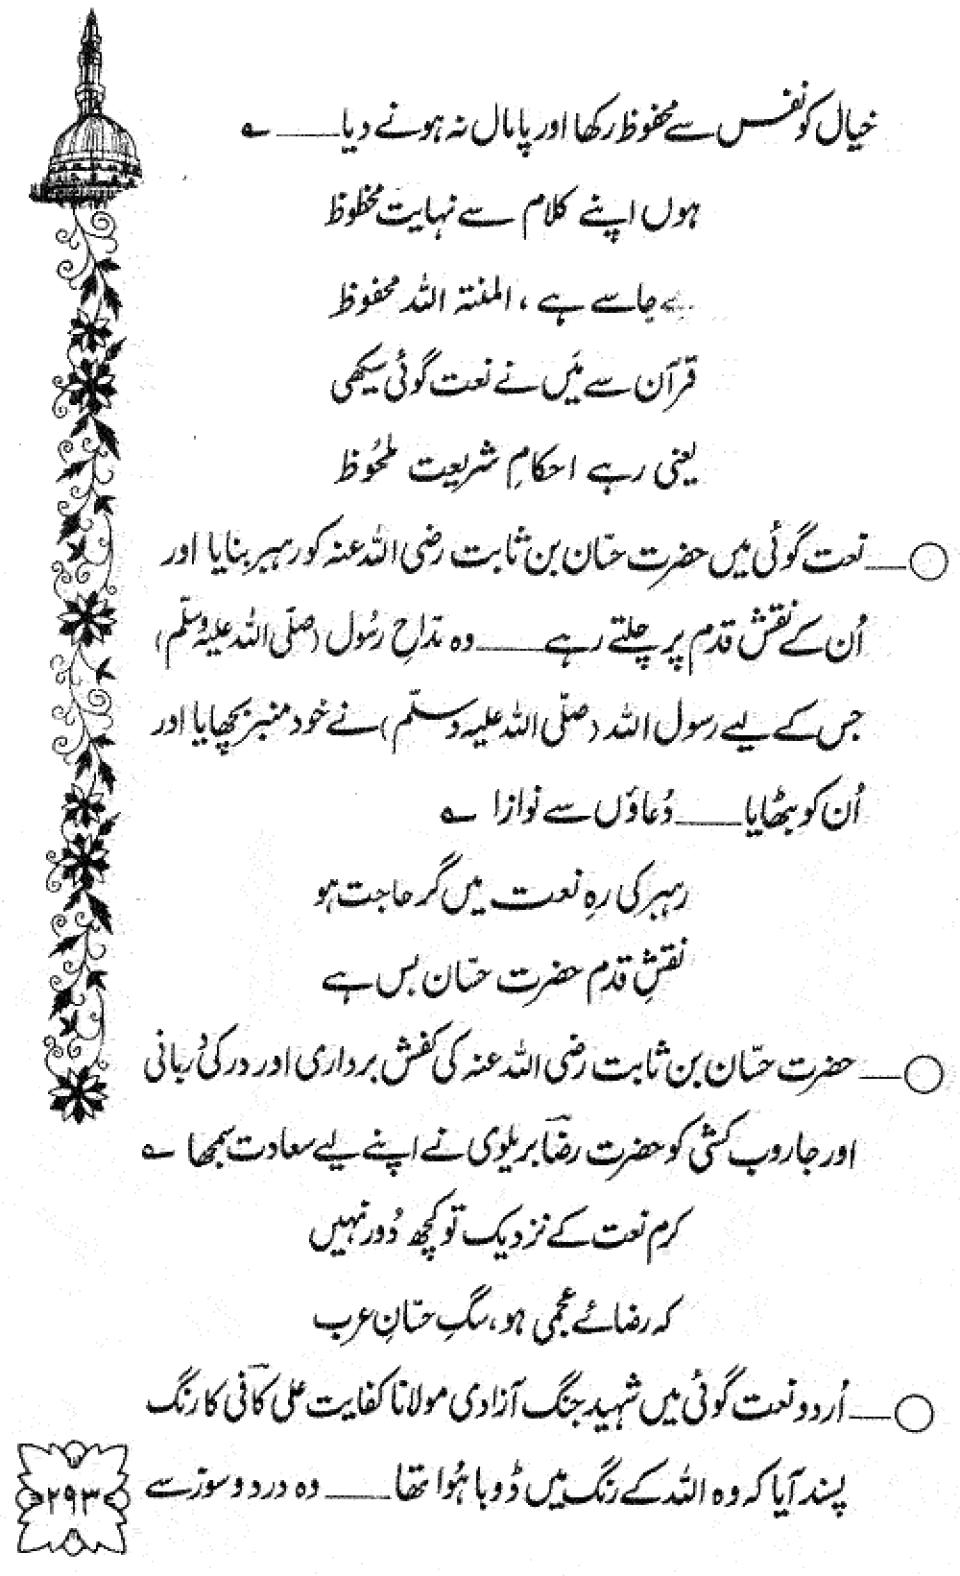 خیال کو نفس سے محفوظ رکھا اور پامال نہ ہونے دیا ــــــ ؎
ہوں اپنے کلام سے نہایت محظوظ
بے جا سے ہے ، المنۃ اللہ محفوظ
قرآن سے مَیں نے نعت گوئی سیکھی
یعنی رہے احکامِ شریعت ملحُوظ
○ ــــ نعت گوئی میں حضرت حسّان بن ثابت رضی اللہ عنہ کو رہبر بنایا اور
اُن کے نقش قدم پر چلتے رہے ــــــ وہ مدّاحِ رسُول (صلّی اللہ علیہ وسلّم)
جس کے لیے رسول اللہ (صلّی اللہ علیہ وسلّم) نے خود منبر بچھایا اور
اُن کو بٹھایا ــــــ دُعاؤں سے نوازا ؎
رہبر کی رہِ نعت میں گر حاجت ہو
نقشِ قدم حضرت حسّان بس ہے
○ ــــ حضرت حسّان بن ثابت رضی اللہ عنہ کی کفش برداری اور در کی دُربانی
اور جاروب کشی کو حضرت رضؔا بریلوی نے اپنے لیے سعادت سمجھا ؎
کرم نعت کے نزدیک تو کچھ دُور نہیں
کہ رضائے عجمی ہو، سگِ حسّانِ عرب
○ ــــ اُردو نعت گوئی میں شہید جنگ آزادی مولانا کفایت علی کافؔی کا رنگ
پسند آیا کہ وہ اللہ کے رنگ میں ڈوبا ہُوا تھا ــــــ وہ درد و سوز سے
۲۹۳